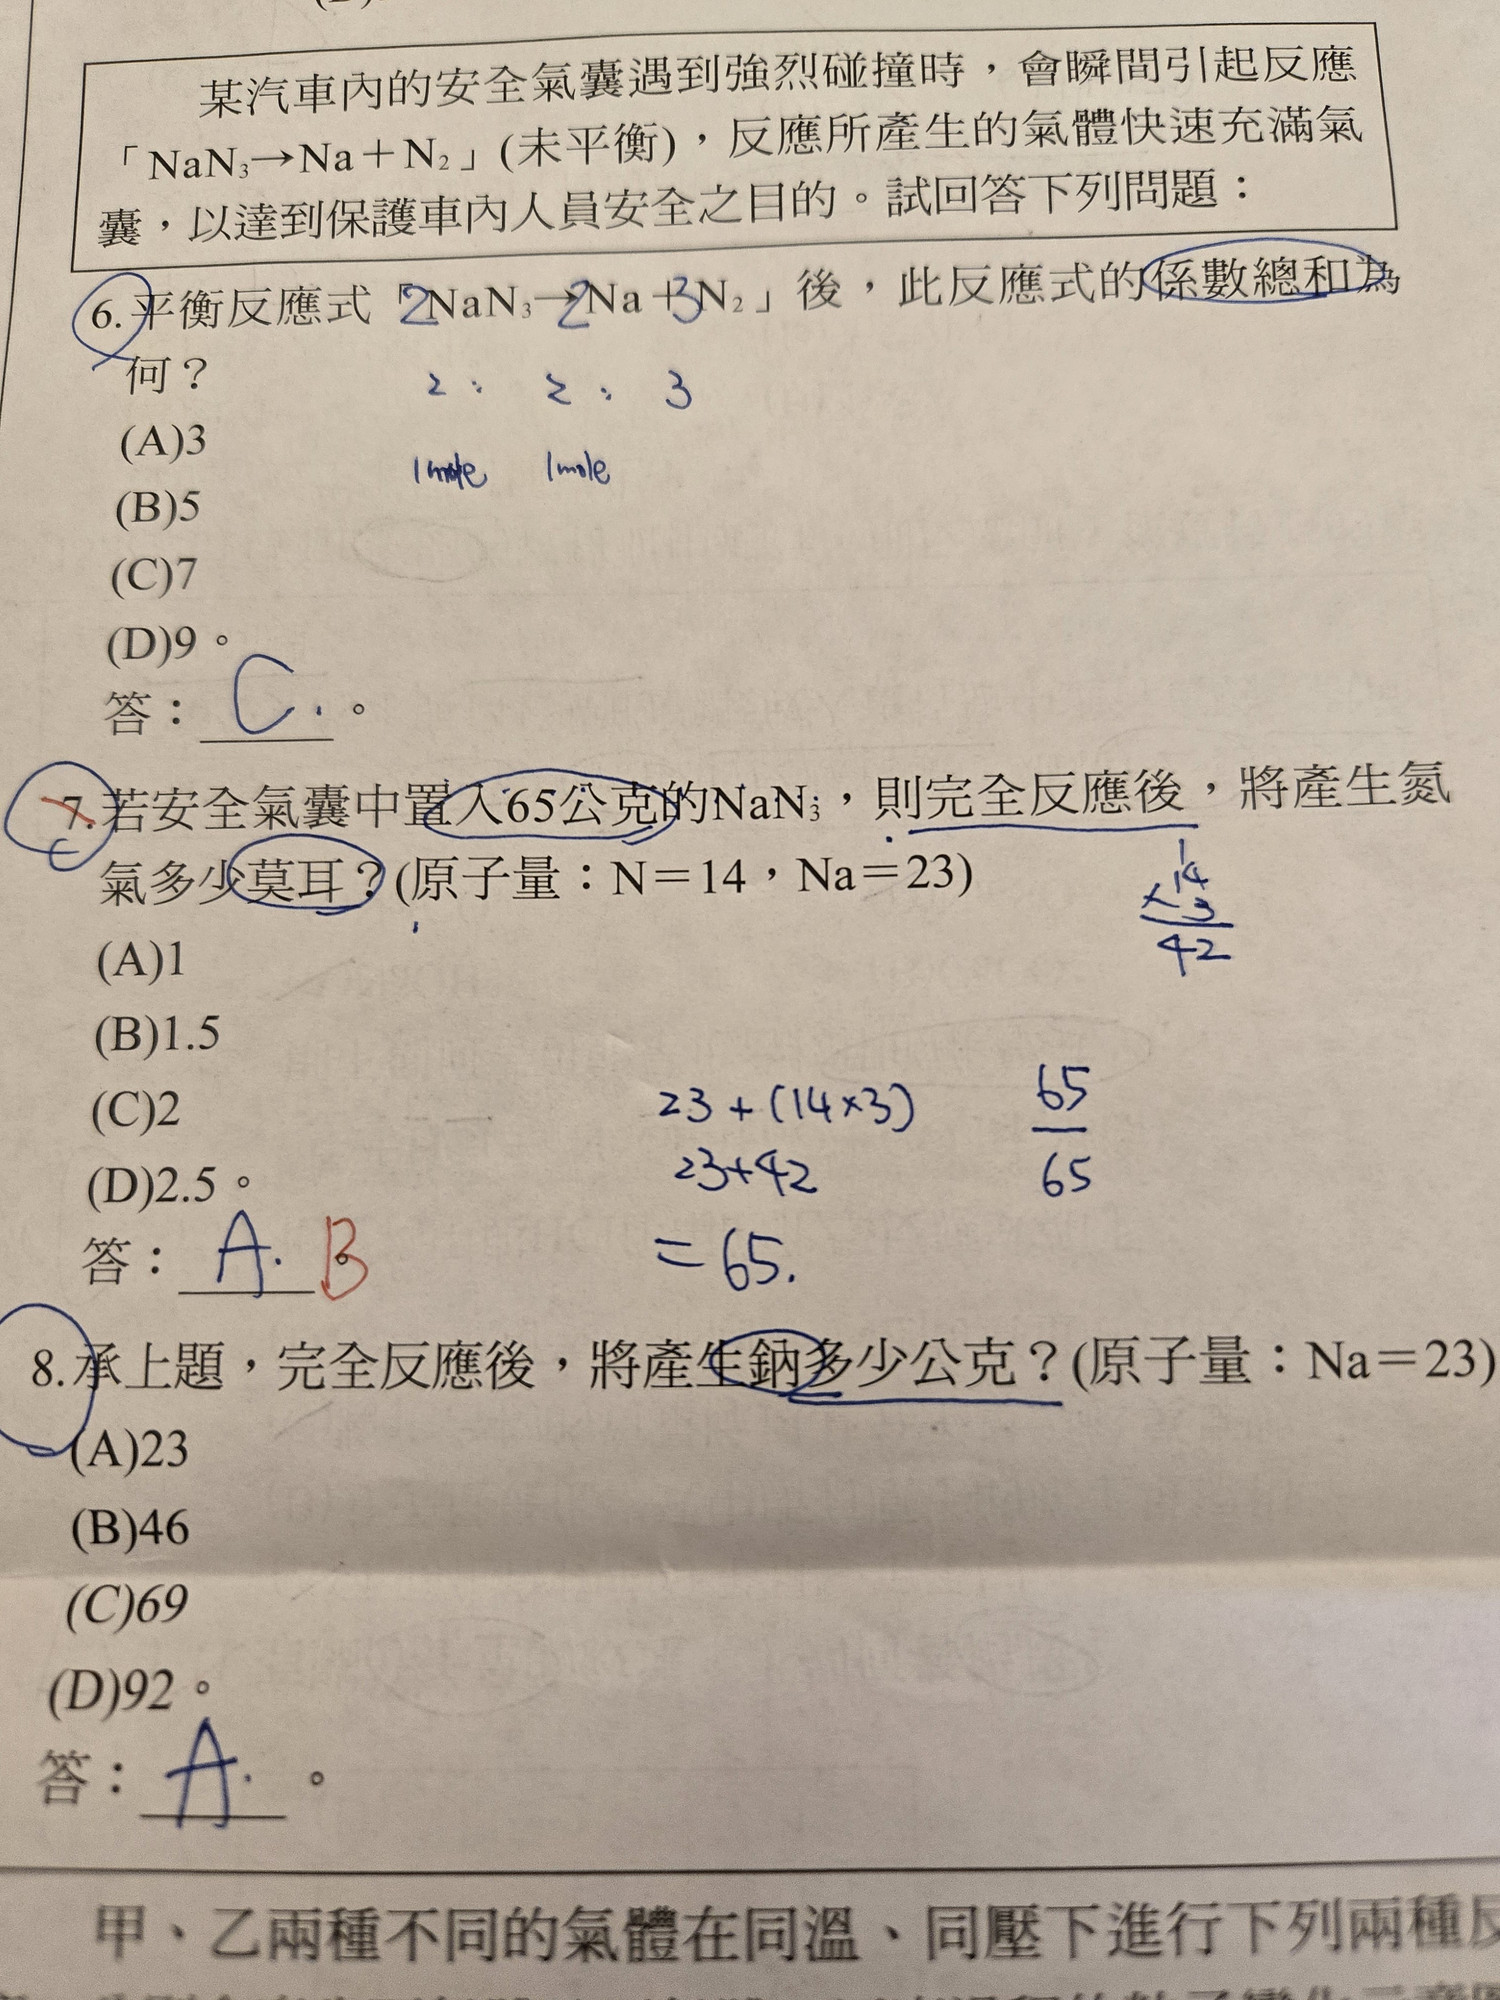 某汽車內的安全氣囊遇到強烈碰撞時，會瞬間引起反應
「NaN₃→Na＋N₂」(未平衡)，反應所產生的氣體快速充滿氣
囊，以達到保護車內人員安全之目的。試回答下列問題：
6.平衡反應式「2NaN₃→2Na＋3N₂」後，此反應式的係數總和為
何？
2 : 2 : 3
(A)3
1mole 1mole
(B)5
(C)7
(D)9。
答：C.。
7.若安全氣囊中置入65公克的NaN₃，則完全反應後，將產生氮
氣多少莫耳？(原子量：N＝14，Na＝23)
1
14
×3
42
(A)1
(B)1.5
(C)2
(D)2.5。
23+(14×3)
23+42
=65.
65
65
答：A. B
8.承上題，完全反應後，將產生鈉多少公克？(原子量：Na＝23)
(A)23
(B)46
(C)69
(D)92。
答：A.。
甲、乙兩種不同的氣體在同溫、同壓下進行下列兩種反